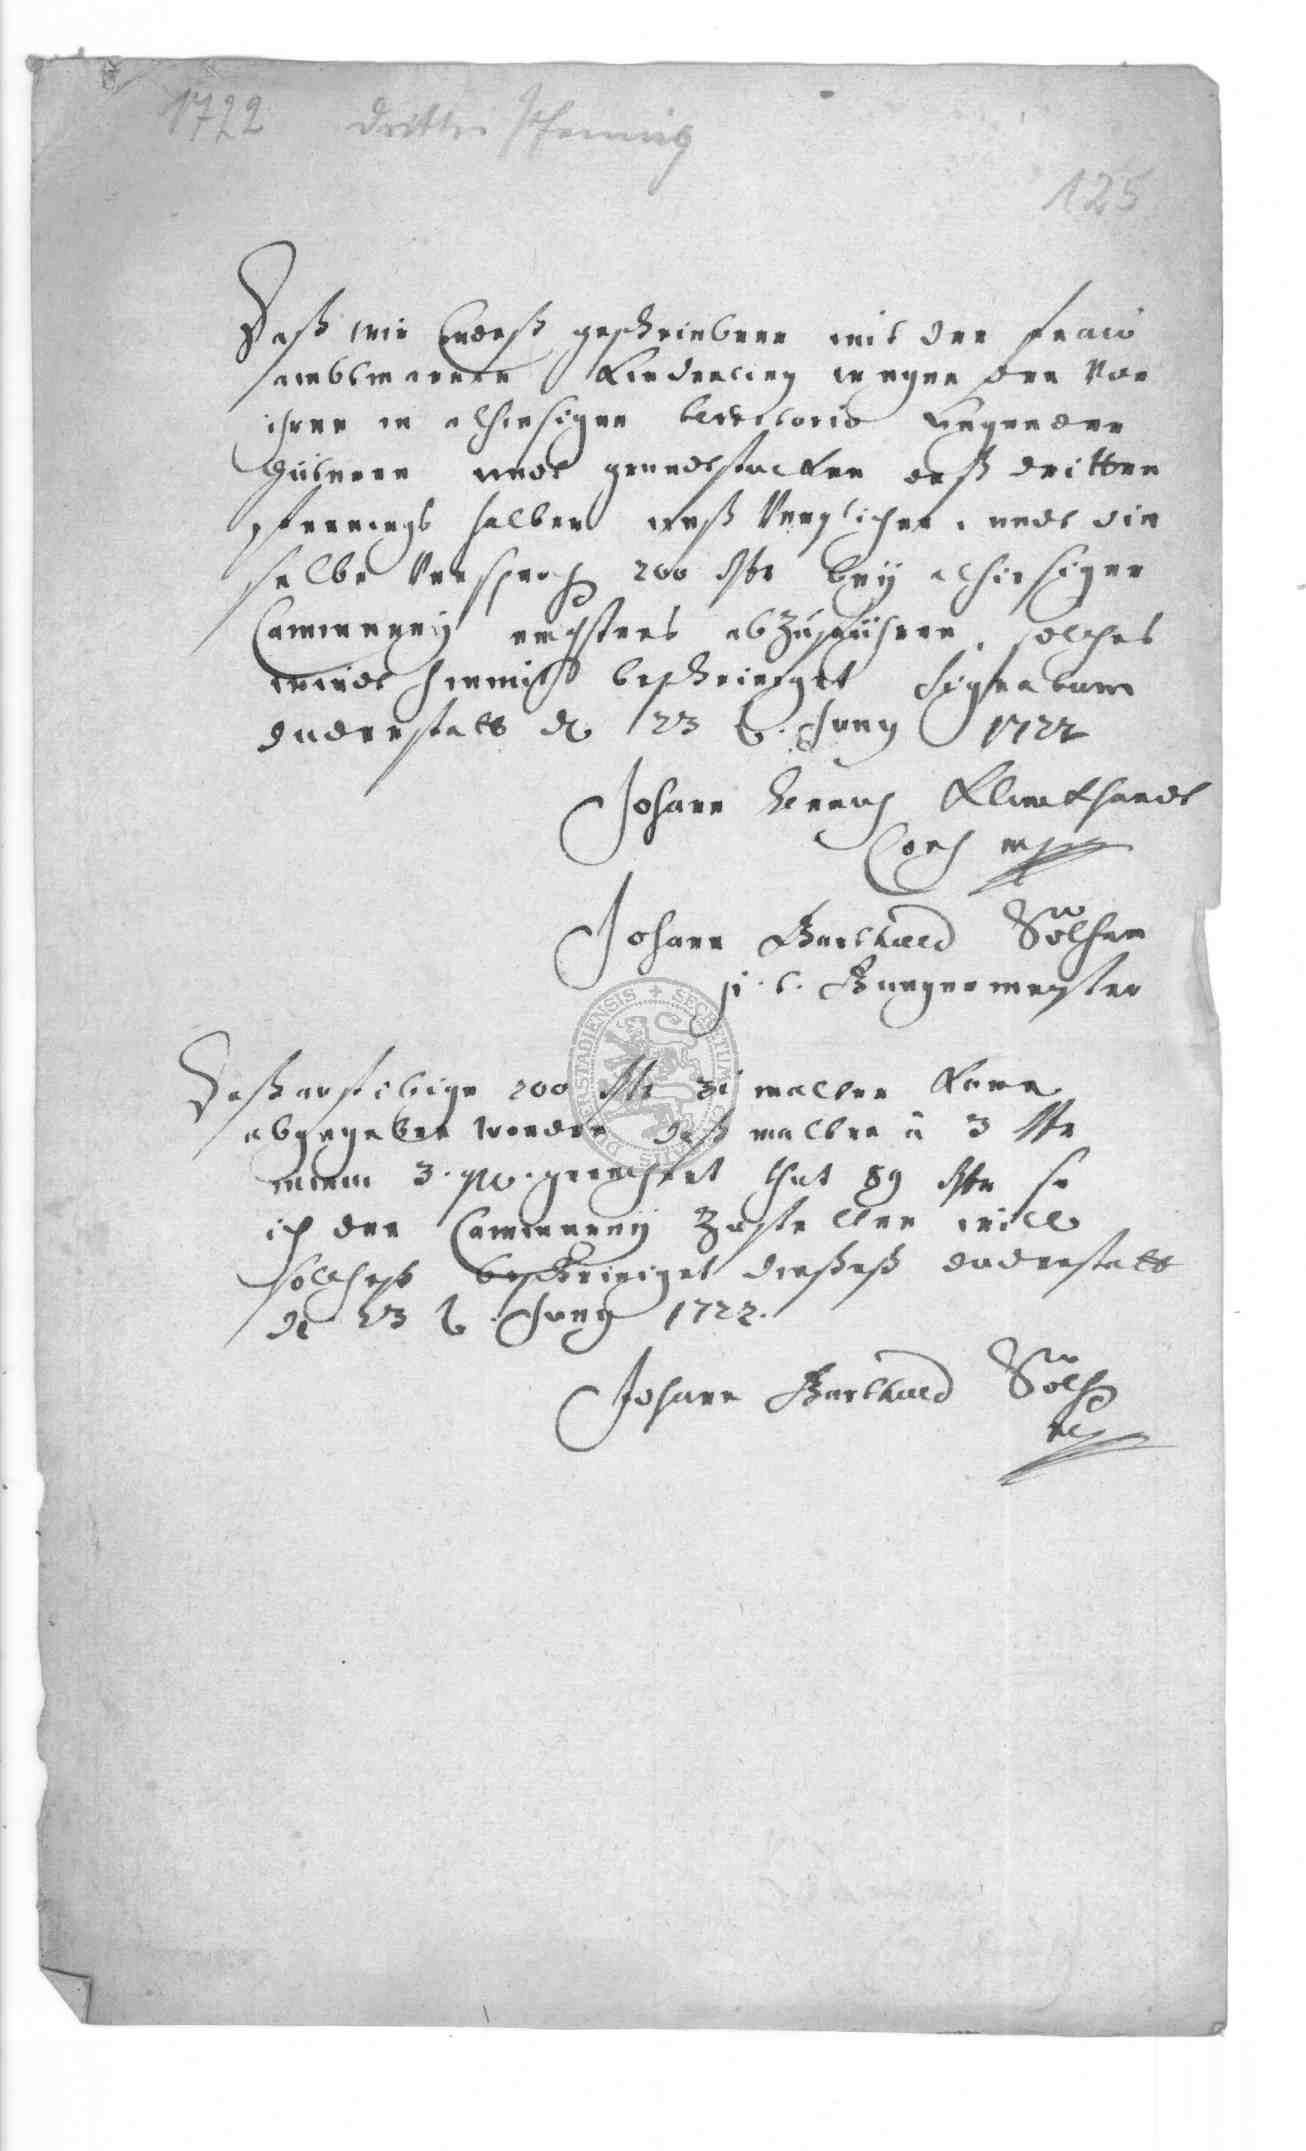 1722 Dritter Pfennig
125
Daß wir Endeß geschriebene mit der fraw
ambtmannin Kinderling wegen der Von
ihren in alhiesigen territorio liegenden
Gütern undt grundtstucken deß dritten
pfennings halber unß Verglichen, undt die
selbe Versproch 200 rthlr bey alhiesiger
Cammerey negstens abzuführen, solches
wirdt hiemit bescheiniget Signatum
duderstatt d 23 t. Juny 1722
Johann Henrich Klinckhardt
Cons mp
Johann Barthold Sölchen
p. t. Burgermeyster
Daß auf obige 200 rthlr malter Korn
abgegeben worden daß malter a 3 rthlr
minus 3. gerechnet thut 89 rthlr so
ich der Cammerey zustellen will
solcheß bescheiniget dießeß duderstatt
d 23 t. Juny 1722.
Johann Barthold Sölch
mp
SECRETUM DUDERSTADIENSIS